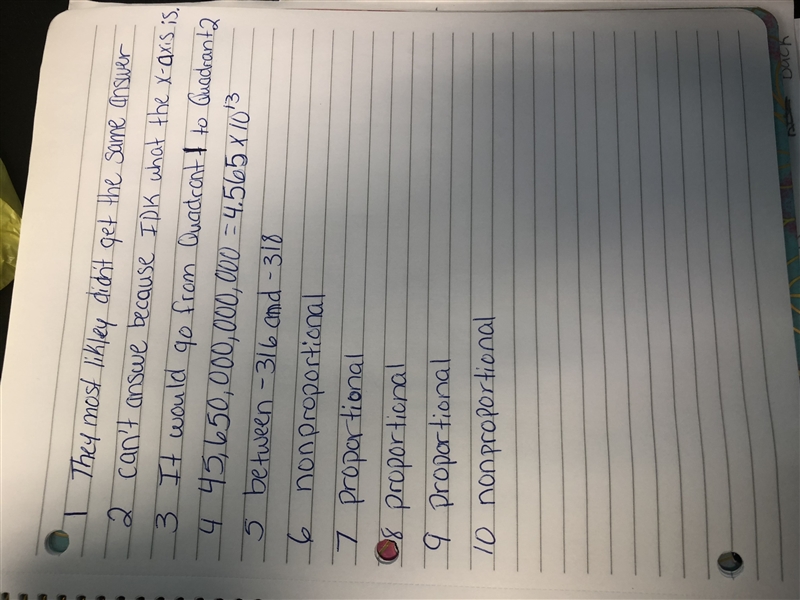 1 They most likley didn't get the same answer
2 can't answe because IDK what the x-axis is.
3 It would go from Quadrant 1 to Quadrant 2
4 45,650,000,000,000 = 4.565 x 10¹³
5 between -316 and -318
6 nonproportional
7 proportional
8 proportional
9 proportional
10 nonproportional
back